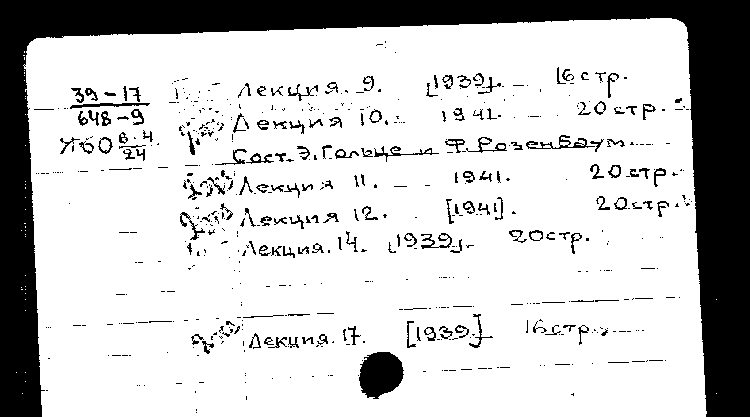 39-17
648-9
Лекция. 9. [1939]. 16 стр.
Лекция 10. 1941. 20 стр.
Сост. Э. Гольце и Ф. Розенбаум.
Лекция 11. 1941. 20 стр.
Лекция 12. [1941]. 20 стр.
Лекция. 14. [1939]. 20 стр.
Лекция. 17. [1939] 16 стр.